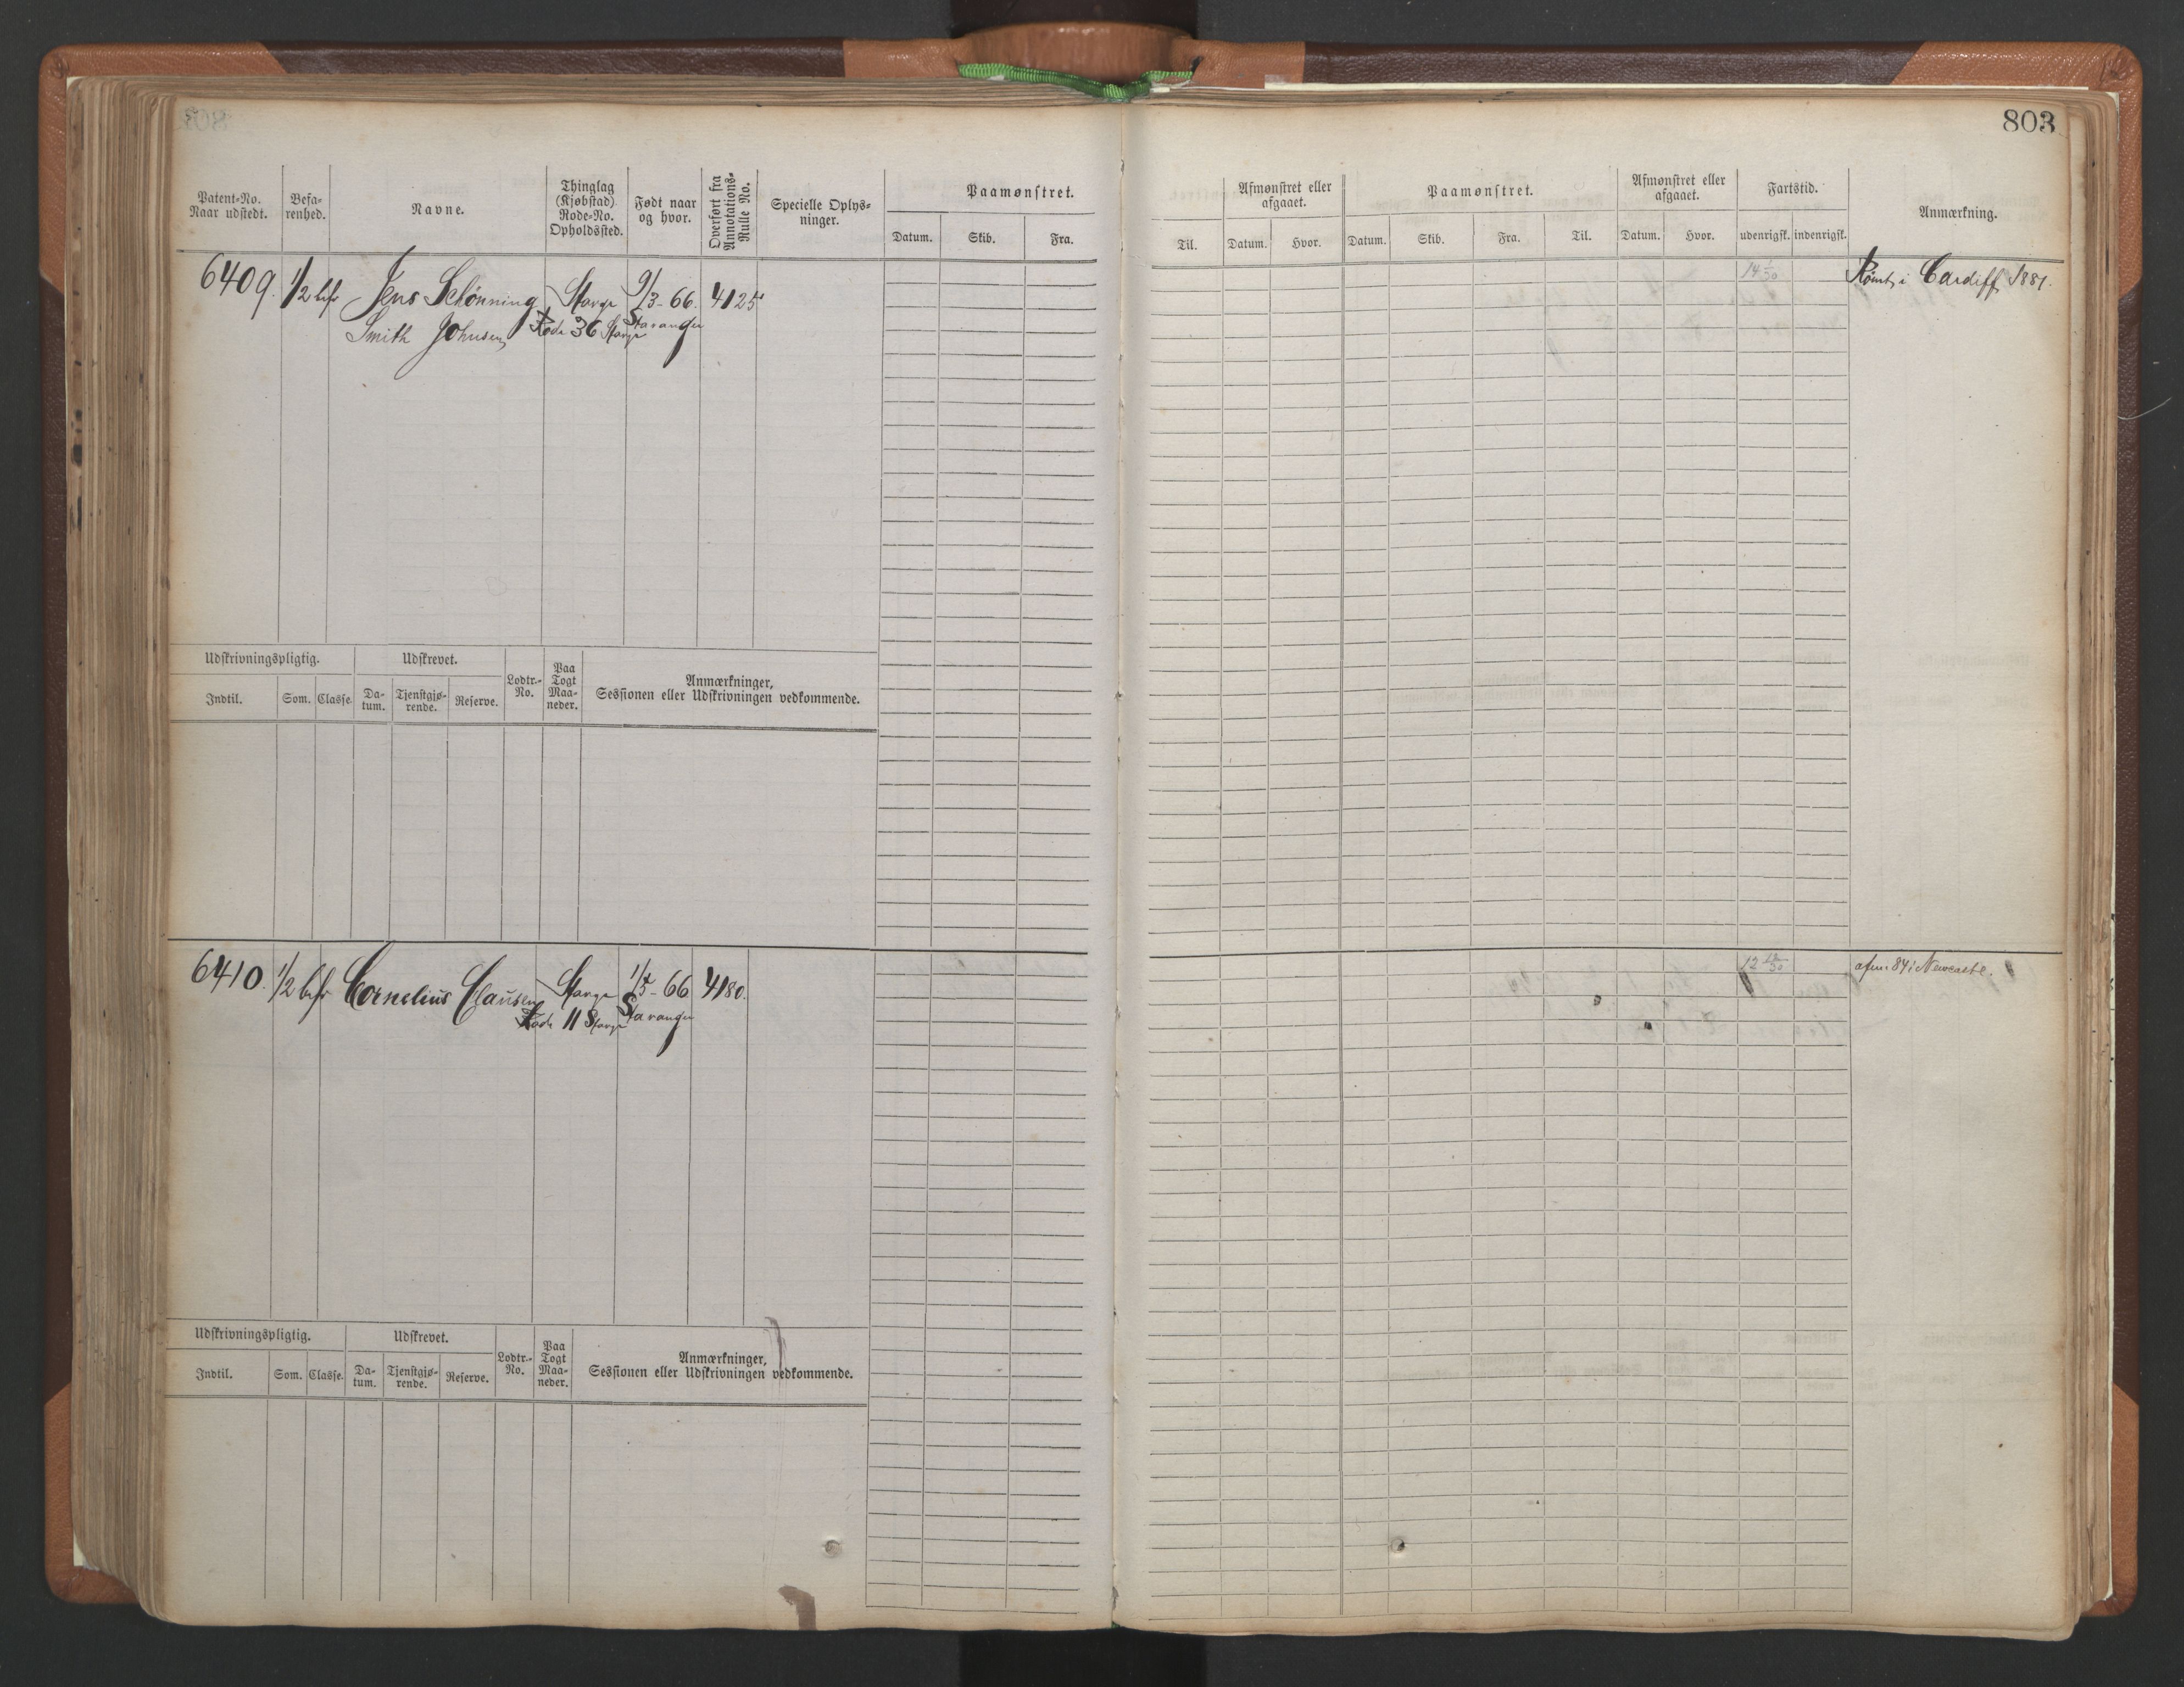 803
Patent-No.
Naar udstedt.
Befa-
renhed.
Navne.
Thinglag
(Kjøbstad)
Rode-No.
Opholdssted.
Født naar
og hvor.
Overført fra
Annotations-
Rulle No.
Specielle Oplys-
ninger.
Paamønstret.
Datum. Skib. Fra.
Til.
Afmønstret eller
afgaaet.
Datum. Hvor.
Paamønstret.
Datum. Skib. Fra. Til.
Afmønstret eller
afgaaet.
Datum. Hvor.
Fartstid.
udenrigsk. indenrigsk.
Anmærkning.
6409. 1/2 bef Jens Schönning Stavgr 9/3-66. 4125 14 Rømt i Cardiff 1881.
Smith Johnsen Rode 36 Stavgr Stavanger
Udskrivningspligtig. Udskrevet.
Indtil. Som. Classe.
Da-
tum.
Tjenstgjø-
rende.
Reserve.
Lodtr.-
No.
Paa
Togt
Maa-
neder.
Anmærkninger,
Sessionen eller Udskrivningen vedkommende.
6410. 1/2 bef Cornelius Clausen Stavgr 1/5-66 4180. 12 afm 84 i Newcastle.
Rode 11 Stavgr Stavanger
Udskrivningspligtig. Udskrevet.
Indtil. Som. Classe.
Da-
tum.
Tjenstgjø-
rende.
Reserve.
Lodtr.-
No.
Paa
Togt
Maa-
neder.
Anmærkninger,
Sessionen eller Udskrivningen vedkommende.